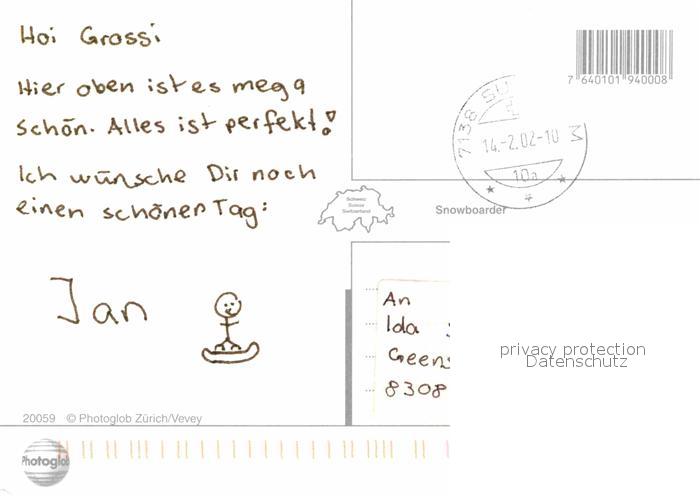 Hoi Grossi
Hier oben ist es mega
schön. Alles ist perfekt!
Ich wünsche Dir noch
einen schönen Tag:
Jan
7 640101 940008
7138 SU
14.-2.02-10 M
10a
Schweiz
Suisse
Switzerland
Snowboarder
An
Ida
Geens
8308
privacy protection
Datenschutz
20059 © Photoglob Zürich/Vevey
Photoglob